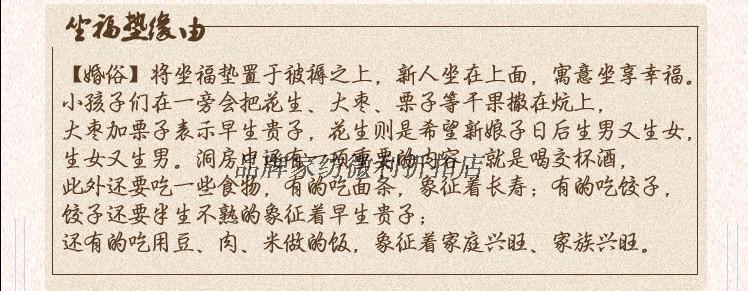 坐福垫缘由
【婚俗】将坐福垫置于被褥之上，新人坐在上面，寓意坐享幸福。
小孩子们在一旁会把花生、大枣、栗子等干果撒在炕上，
大枣加栗子表示早生贵子，花生则是希望新娘子日后生男又生女，
生女又生男。洞房中还有一项重要的内容，就是喝交杯酒，
品牌家纺微利折扣店
此外还要吃一些食物，有的吃面条，象征着长寿；有的吃饺子，
饺子还要半生不熟的象征着早生贵子；
还有的吃用豆、肉、米做的饭，象征着家庭兴旺、家族兴旺。